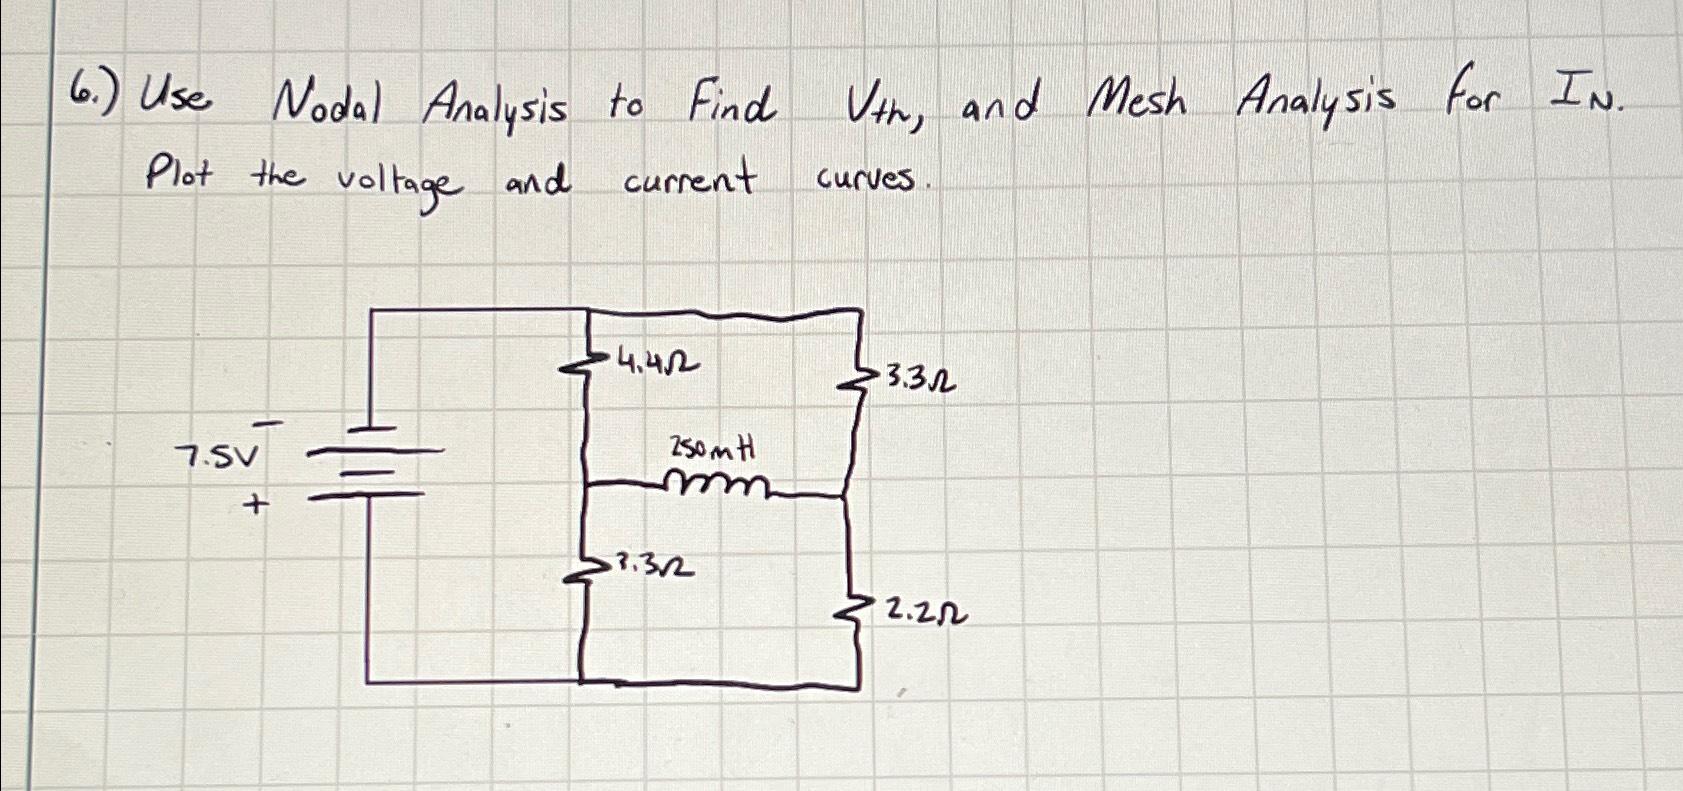 6.) Use Nodal Analysis to Find Vth, and Mesh Analysis for IN.
Plot the voltage and current curves.
4.4Ω
3.3Ω
250mH
7.5V
-
+
3.3Ω
2.2Ω